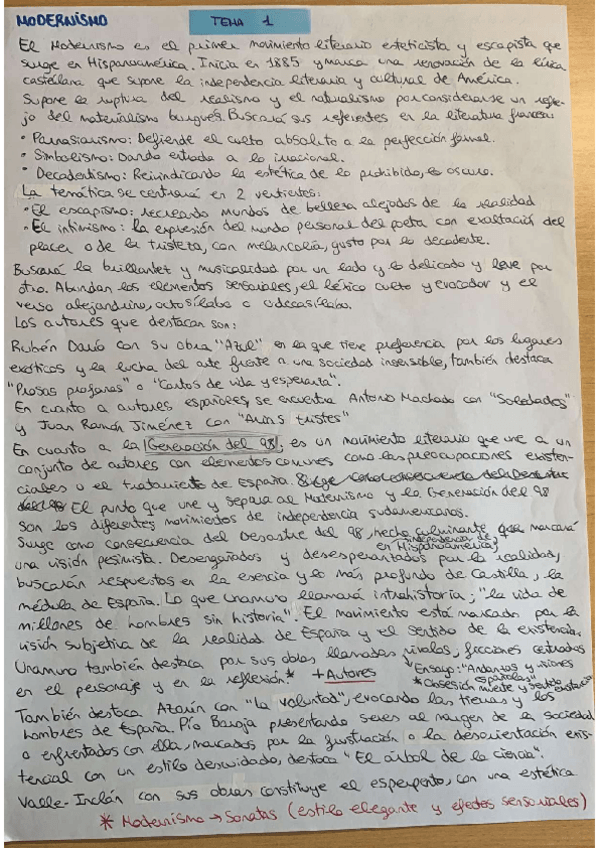 MODERNISMO
TEMA 1
El Modernismo es el primer movimiento literario esteticista y escapista que
surge en Hispanoamérica. Inicia en 1885 y marca una renovación de la lírica
castellana que supone la independencia literaria y cultural de América.
Supone la ruptura del realismo y el naturalismo por considerarse un refle-
jo del materialismo burgués. Buscará sus referentes en la literatura francesa:
• Parnasianismo: Defiende el culto absoluto a la perfección formal.
• Simbolismo: Dando entrada a lo irracional.
• Decadentismo: Reivindicando la estética de lo prohibido, lo oscuro.
La temática se centrará en 2 vertientes:
• El escapismo: recreando mundos de belleza alejados de la realidad
• El intimismo: la expresión del mundo personal del poeta con exaltación del
placer o de la tristeza, con melancolía, gusto por lo decadente.
Buscará la brillantez y musicalidad por un lado y lo delicado y leve por
otro. Abundan los elementos sensoriales, el léxico culto y evocador y el
verso alejandrino, octosílabo o endecasílabo.
Los autores que destacan son:
Rubén Darío con su obra "Azul" en la que tiene preferencia por los lugares
exóticos y la lucha del arte frente a una sociedad insensible, también destaca
"Prosas profanas" o "Cantos de vida y esperanza".
En cuanto a autores españoles, se encuentra Antonio Machado con "Soledades"
y Juan Ramón Jiménez con "Arias tristes"
En cuanto a la Generación del 98, es un movimiento literario que une a un
conjunto de autores con elementos comunes como las preocupaciones existen-
ciales o el tratamiento de España. Surge como consecuencia del Desastre
del 98 El punto que une y separa al Modernismo y la Generación del 98
son los diferentes movimientos de independencia sudamericanos.
Surge como consecuencia del Desastre del 98, hecho culminante que marcará
independencia de
en Hispanoamérica
una visión pesimista. Desengañados y desesperanzados por la realidad,
buscarán respuestas en la esencia y lo más profundo de Castilla, la
médula de España. Lo que Unamuno llamará intrahistoria; "la vida de
millones de hombres sin historia". El movimiento está marcado por la
visión subjetiva de la realidad de España y el sentido de la existencia.
Unamuno también destaca por sus obras llamadas nivolas, ficciones centradas
en el personaje y en la reflexión.* + Autores
Ensayo: "Andanzas y visiones
españolas"
* Obsesión muerte y sentido existencia
También destaca Azorín con "La voluntad", evocando las tierras y los
hombres de España. Pío Baroja presentando seres al margen de la sociedad
o enfrentados con ella, marcados por la frustración o la desorientación exis-
tencial con un estilo descuidado, destaca "El árbol de la ciencia".
Valle-Inclán con sus obras constituye el esperpento, con una estética
* Modernismo → Sonatas (estilo elegante y efectos sensoriales)